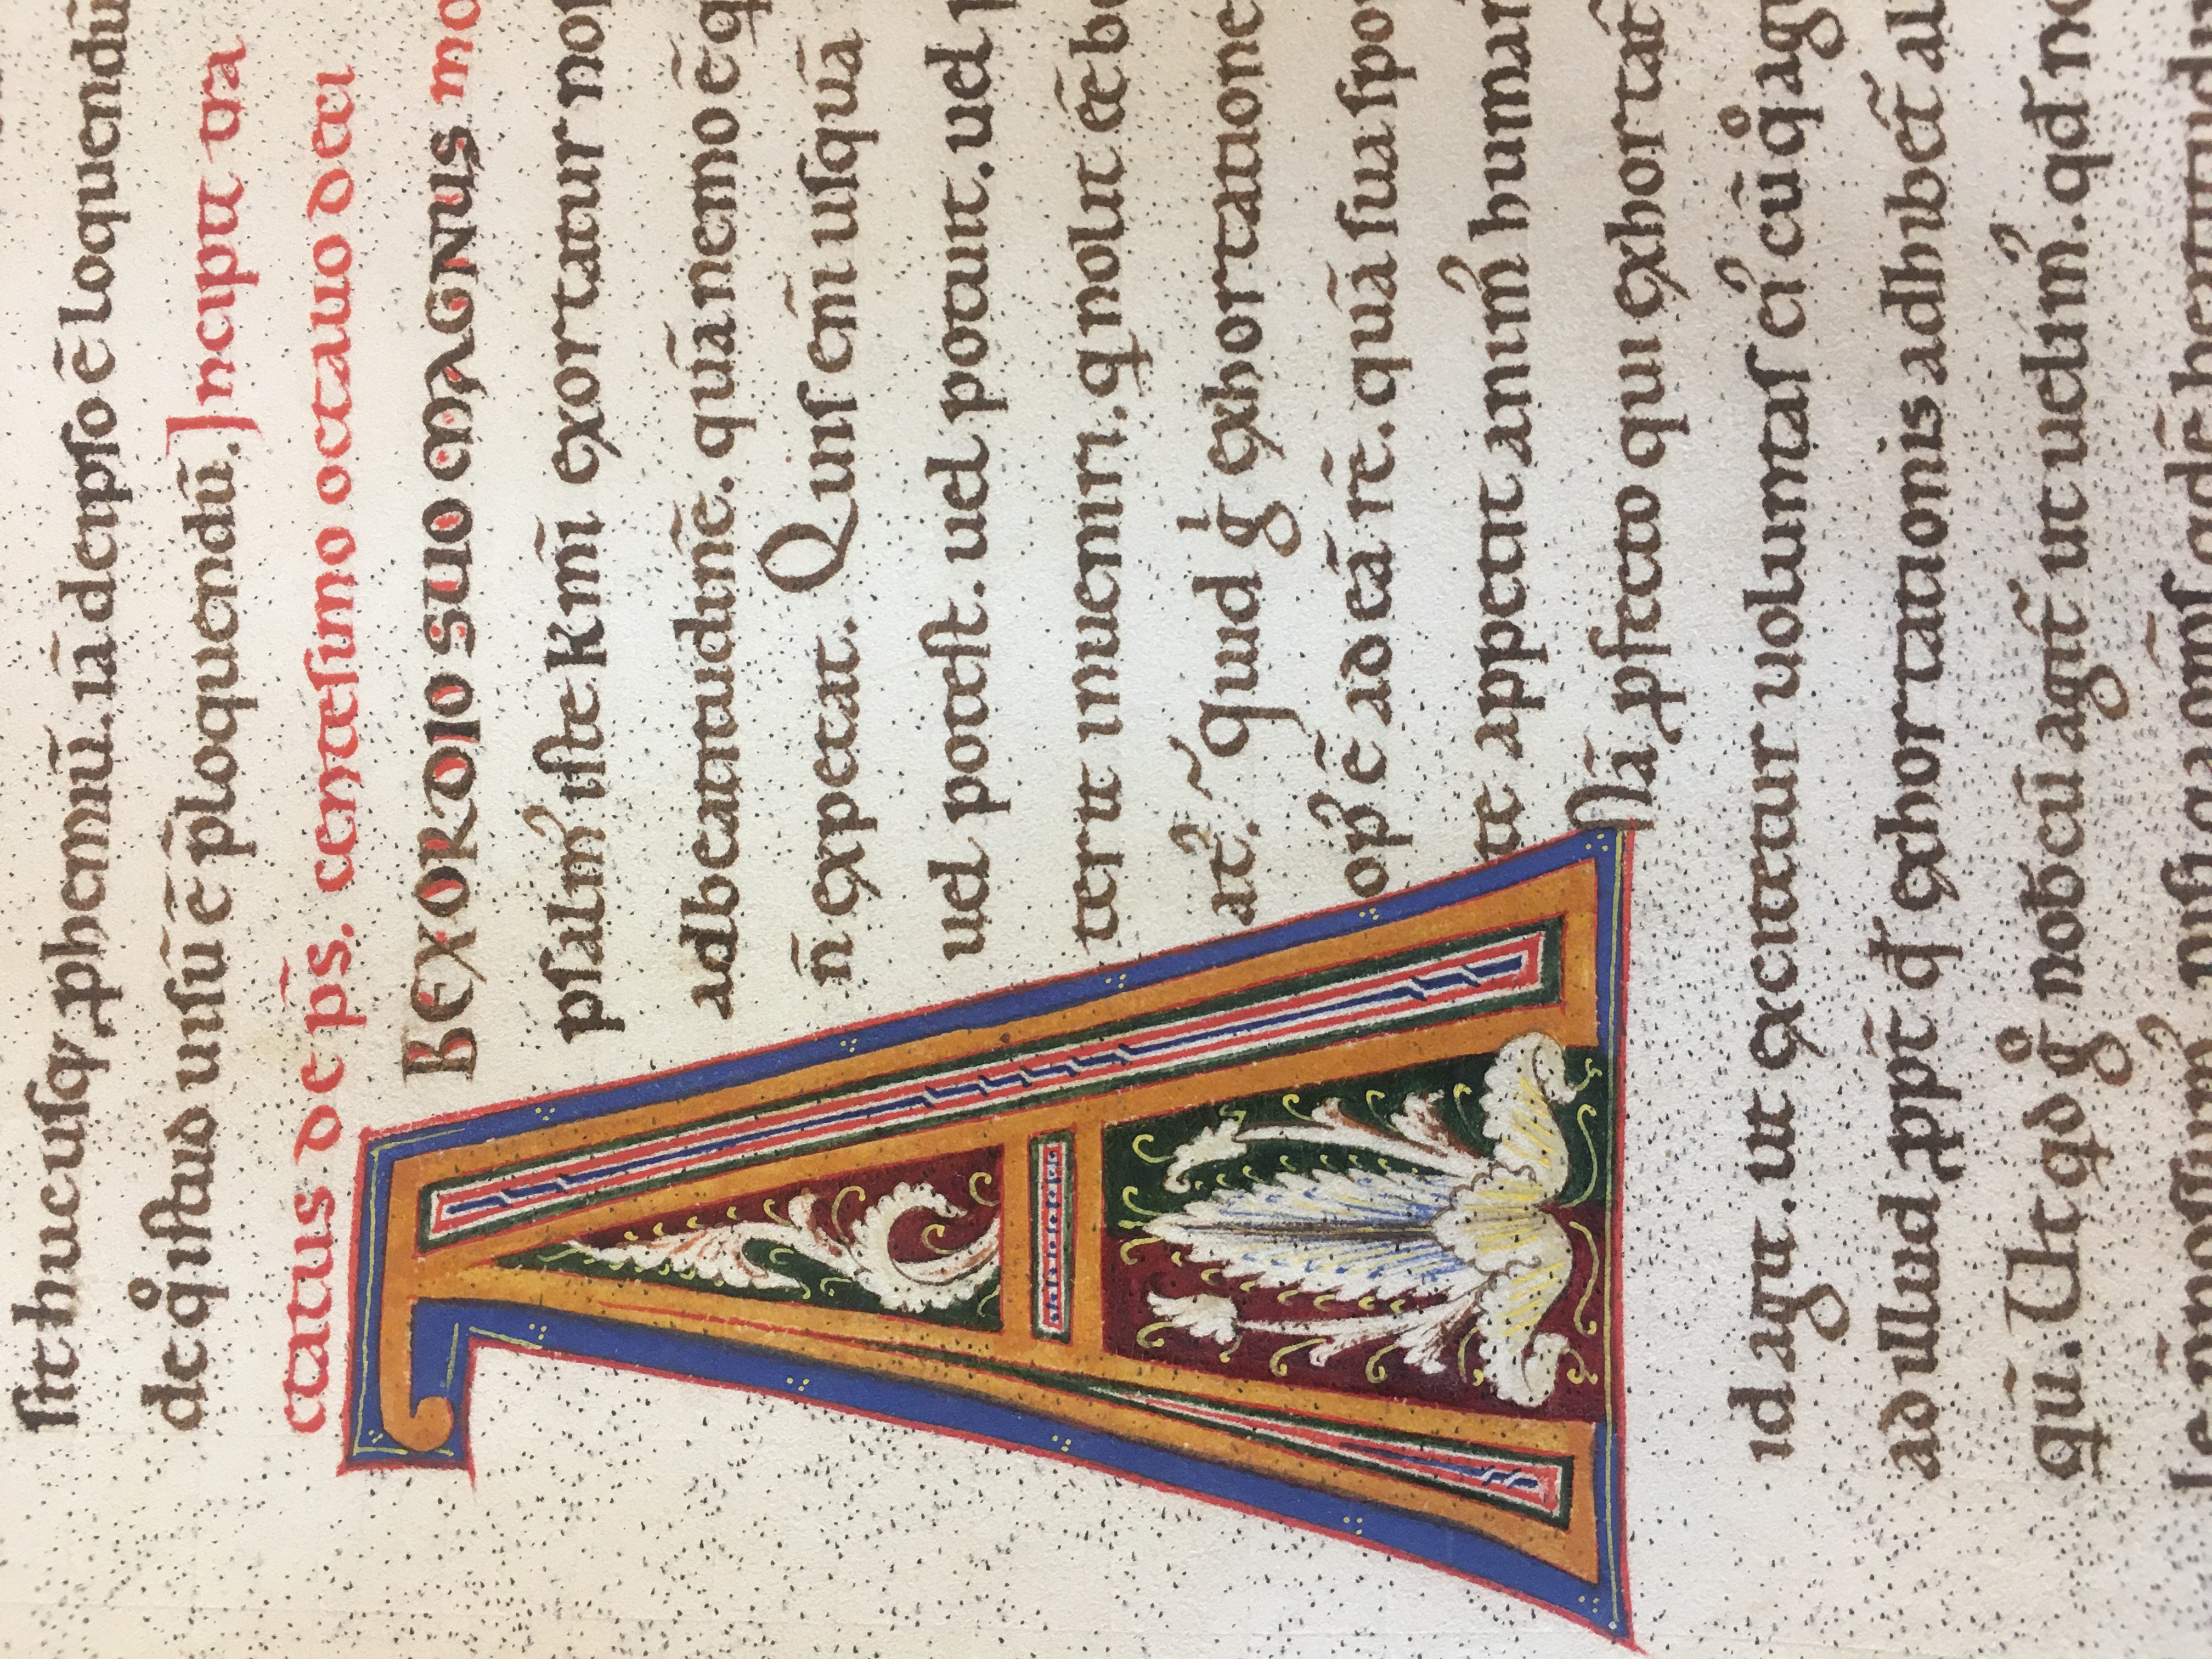 sit huc usq; phemiū. iā de ipso ē loquendū
de qͦ istud uisū ē p̄loquendū. Incipit tra
ctatus de p̄s. centesimo octauo deci
AB EXORDIO SUO MAGNUS mo
psalmꝰ iste Kmi exortatur nos
ad beatitudinē. quā nemo ē q
n̄ expetat. Quis eni usquā
uel potest. uel potuit. uel p
terit inueniri. q nolit eē be
atꝰ. Quid gͥ exhortatione
opꝰ ē ad eā rē. quā sua spo
te appetit animꝰ human
Nā ꝓfecto qui exhortat̄
id agit. ut excitetur uoluntas eiꝰ cū qͦ agi
ad illud ꝓpt̄ qđ exhortationis adhibet̄ al
qū. Ut qd gͦ nobcū agit̄ ut uelimꝰ. qđ no